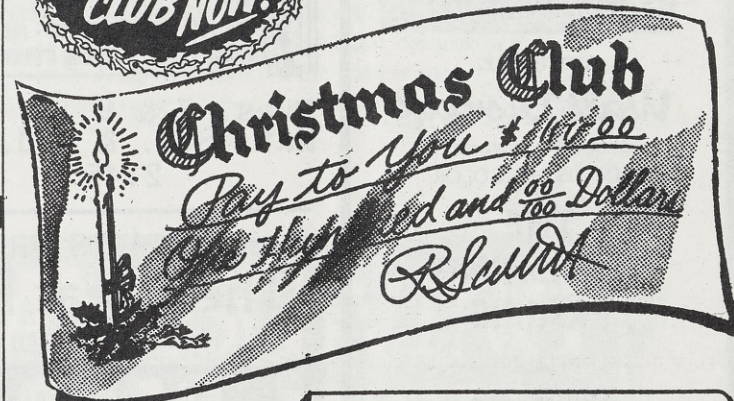 CLUB NOW!
Christmas Club
Pay to You $ 100.00
One Hundred and 00/100 Dollars